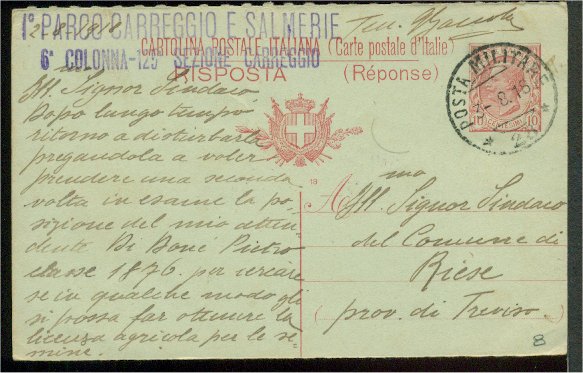 1º PARCO CARREGGIO E SALMERIE
6ª COLONNA-129ª SEZIONE CARREGGIO
CARTOLINA POSTALE ITALIANA (Carte postale d'Italie)
RISPOSTA (Réponse)
POSTA MILITARE
10 CENTESIMI 10
Ill. mo Signor Sindaco
Dopo lungo tempo
ritorno a disturbarla
pregandola a voler
prendere una seconda
volta in esame la po-
sizione del mio atten-
dente Pietro
classe 1876. per cercare
se in qualche modo gli
si possa far ottenere la
licenza agricola per le se-
mine.
All Ill. mo Signor Sindaco
del Comune di
Riese
prov. di Treviso
8